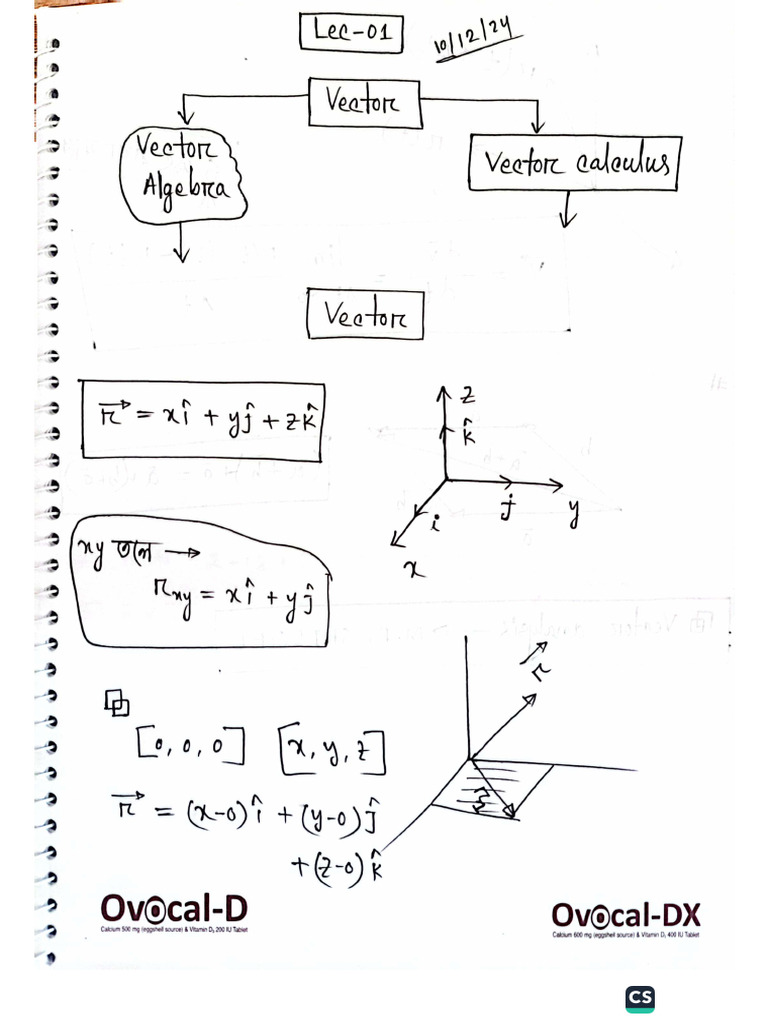 Lec-01
10/12/24
Vector
Vector
Algebra
Vector calculus
Vector
r⃗ = xî + yĵ + zk̂
z
k̂
i
j
y
x
xy তলে →
r_xy = xî + yĵ
r⃗
[0, 0, 0] [x, y, z]
r⃗ = (x-0)î + (y-0)ĵ
+ (z-0)k̂
Ovocal-D
Calcium 500 mg (eggshell source) & Vitamin D₃ 200 IU Tablet
Ovocal-DX
Calcium 600 mg (eggshell source) & Vitamin D₃ 400 IU Tablet
CS